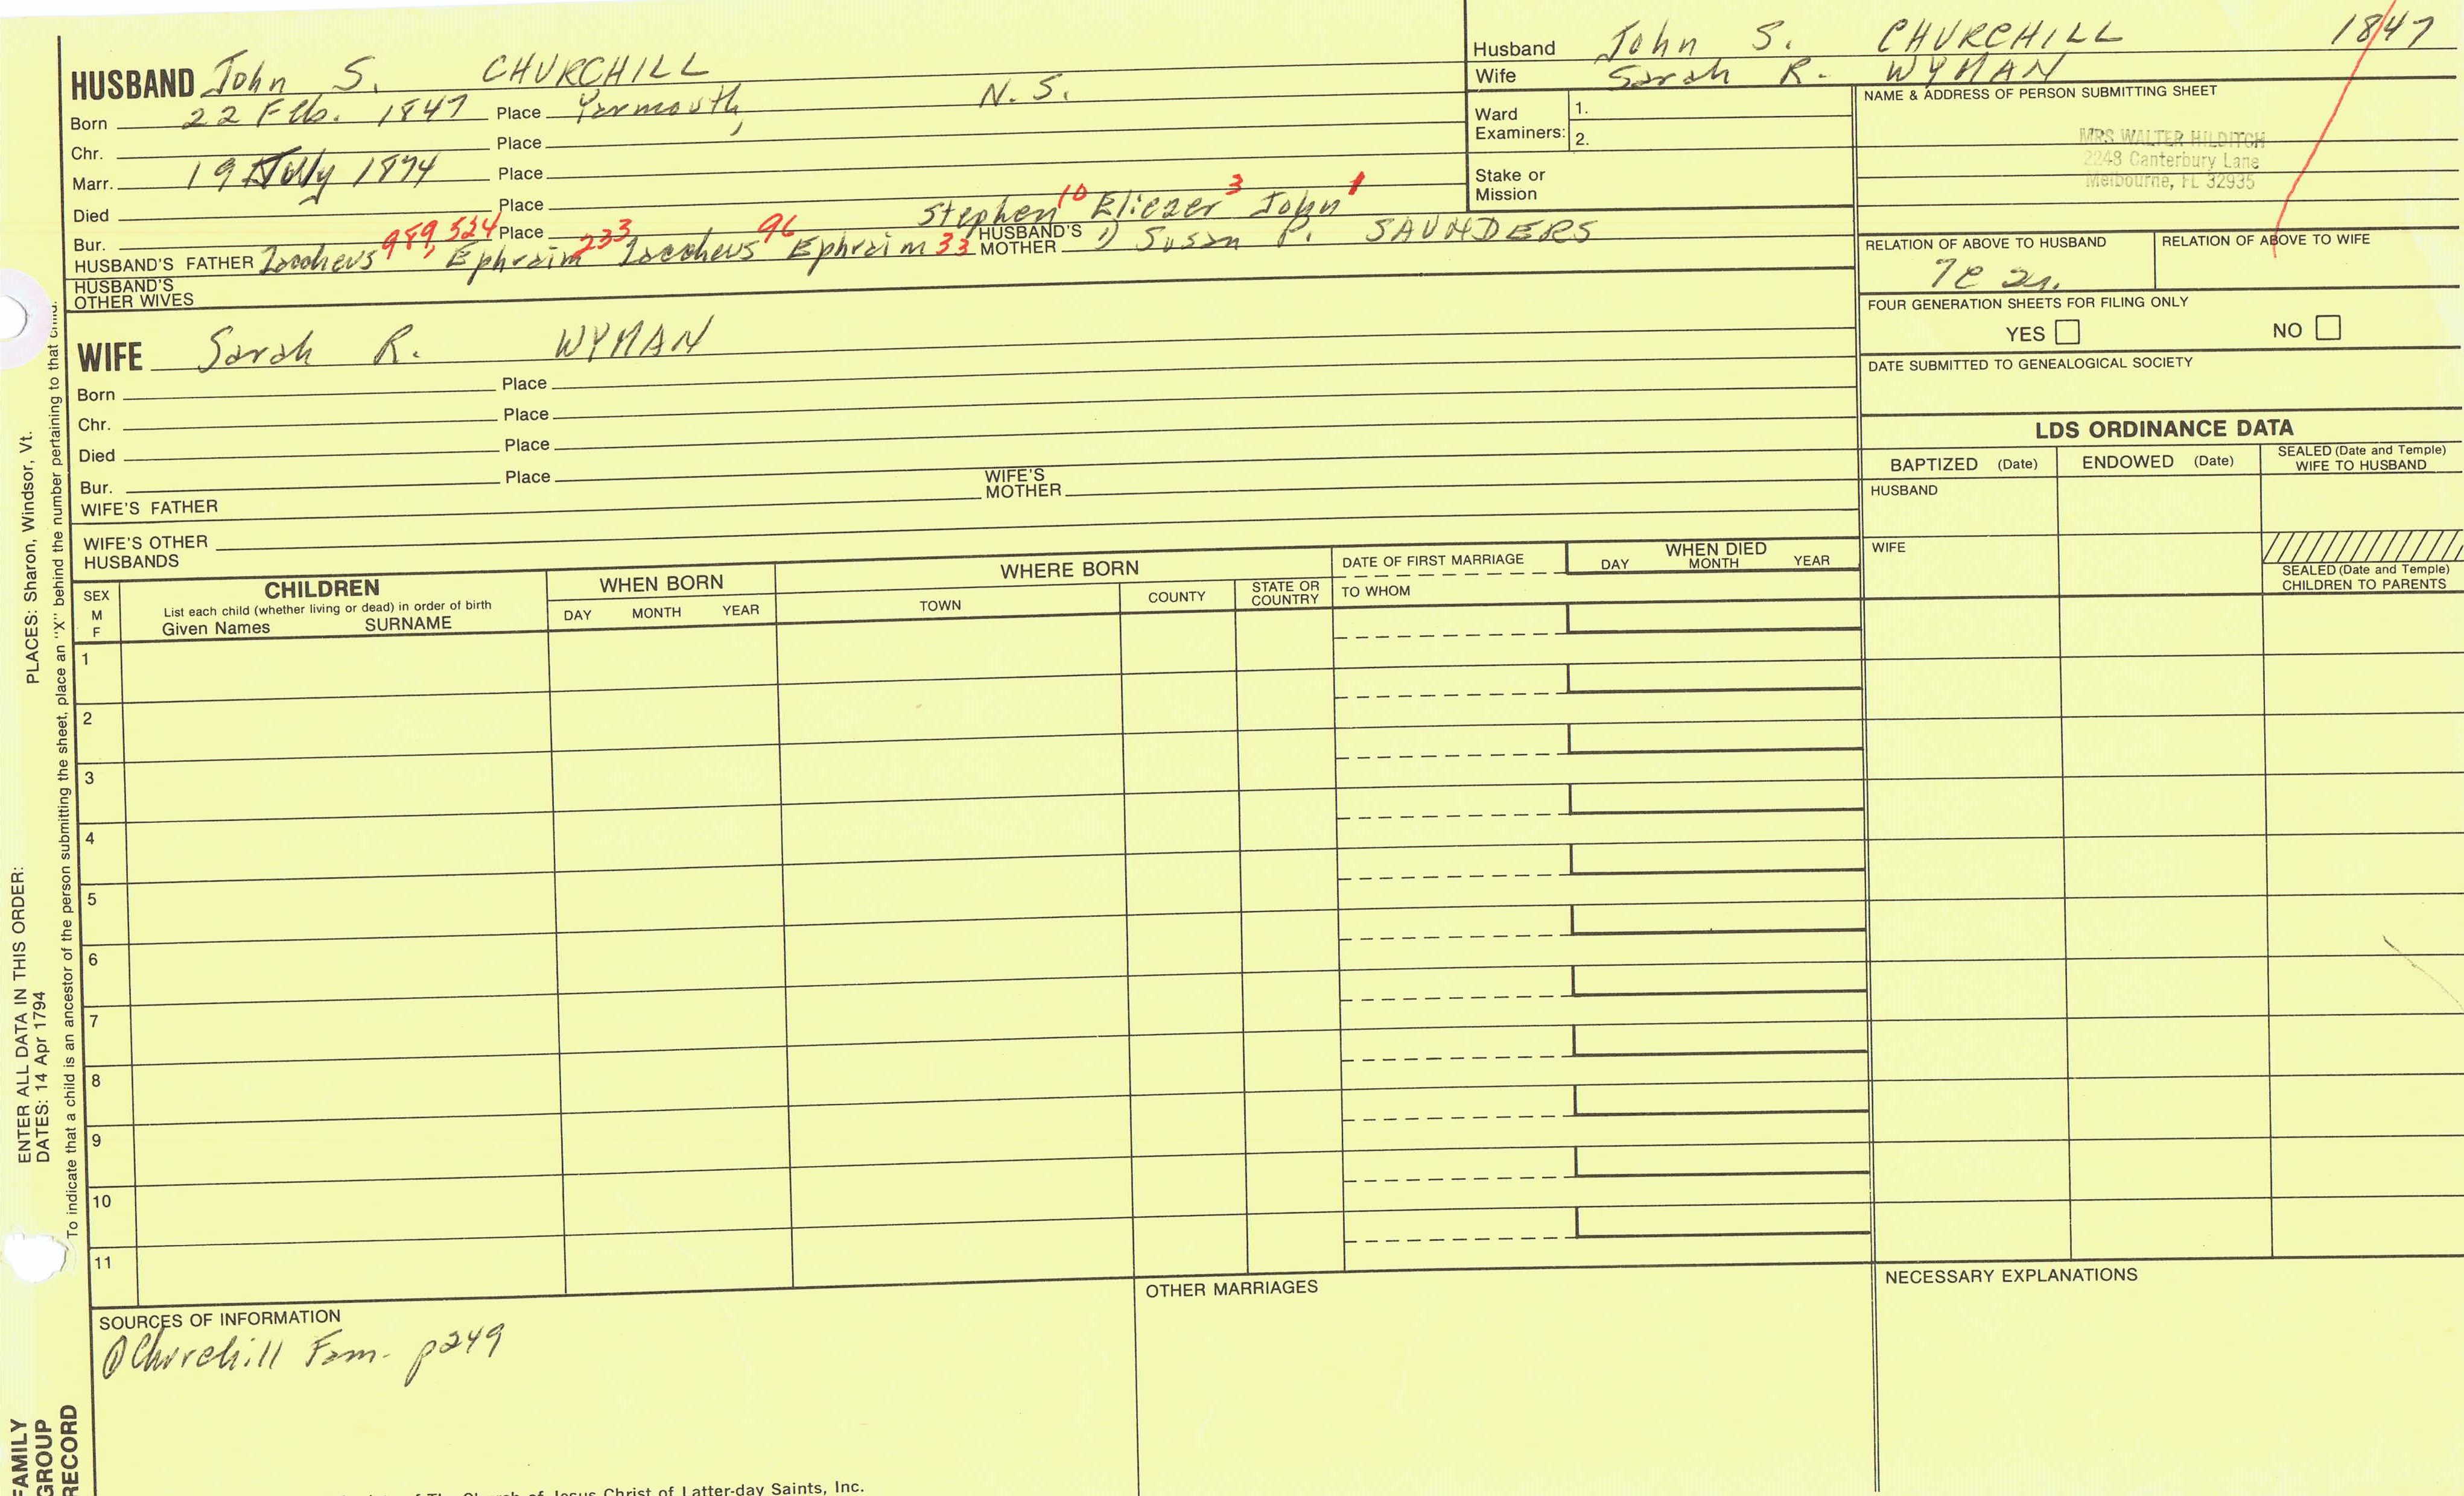 Husband John S. CHURCHILL 1847
Wife Sarah R. WYMAN
HUSBAND John S. CHURCHILL
Born 22 Feb. 1847 Place Yarmouth, N.S.
Chr. Place
Marr. 19 July 1874 Place
Died Place
Stephen 10 Eliezer 3 John 1
Bur. Place
HUSBAND'S FATHER Zaccheus 989, 524 Ephraim 233 Zaccheus 96 Ephraim 33 HUSBAND'S MOTHER 1) Susan P. SAUNDERS
HUSBAND'S OTHER WIVES
Ward
Examiners:
1.
2.
Stake or
Mission
NAME & ADDRESS OF PERSON SUBMITTING SHEET
MRS WALTER HILDITCH
2248 Canterbury Lane
Melbourne, FL 32935
RELATION OF ABOVE TO HUSBAND
7c 2r.
RELATION OF ABOVE TO WIFE
FOUR GENERATION SHEETS FOR FILING ONLY
YES NO
DATE SUBMITTED TO GENEALOGICAL SOCIETY
WIFE Sarah R. WYMAN
Born Place
Chr. Place
Died Place
Bur. Place
WIFE'S FATHER WIFE'S MOTHER
WIFE'S OTHER
HUSBANDS
LDS ORDINANCE DATA
BAPTIZED (Date) ENDOWED (Date) SEALED (Date and Temple)
WIFE TO HUSBAND
HUSBAND
WIFE
SEALED (Date and Temple)
CHILDREN TO PARENTS
SEX
M
F
CHILDREN
List each child (whether living or dead) in order of birth
Given Names SURNAME
WHEN BORN
DAY MONTH YEAR
WHERE BORN
TOWN COUNTY STATE OR COUNTRY
DATE OF FIRST MARRIAGE
TO WHOM
WHEN DIED
DAY MONTH YEAR
1
2
3
4
5
6
7
8
9
10
11
SOURCES OF INFORMATION
① Churchill Fam. p249
OTHER MARRIAGES
NECESSARY EXPLANATIONS
The Church of Jesus Christ of Latter-day Saints, Inc.
PLACES: Sharon, Windsor, Vt.
To indicate that a child is an ancestor of the person submitting the sheet, place an "X" behind the number pertaining to that child.
ENTER ALL DATA IN THIS ORDER:
DATES: 14 Apr 1794
FAMILY
GROUP
RECORD